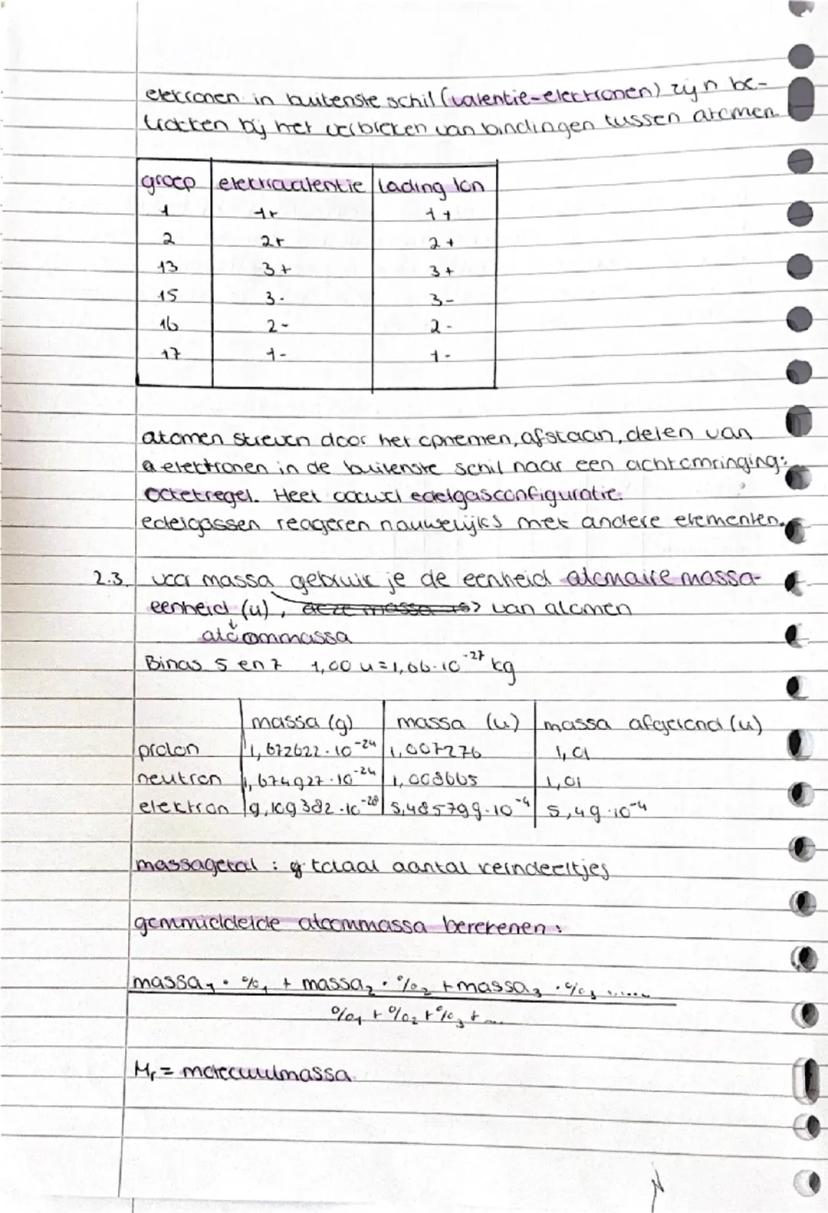 electronen in buitenste schil (valentie-electronen) zijn be-
trokken bij het verbreken van bindingen tussen atomen
groep electrovalentie lading Ion
1 1+ 1+
2 2+ 2+
13 3+ 3+
15 3- 3-
16 2- 2-
17 1- 1-
atomen streven door het opnemen, afstaan, delen van
electronen in de buitenste schil naar een achtomringing:
octetregel. Heet ook wel edelgasconfiguratie.
edelgassen reageren nauwelijks met andere elementen.
2.3. voor massa gebruik je de eenheid atomaire massa-
eenheid (u), deze massa is van atomen
atoommassa
Binas 5 en 7 1,00 u = 1,66·10⁻²⁷ kg
massa (g) massa (u) massa afgerond (u)
proton 1,672622·10⁻²⁴ 1,007276 1,01
neutron 1,674927·10⁻²⁴ 1,008665 1,01
elektron 9,109382·10⁻²⁸ 5,485799·10⁻⁴ 5,49·10⁻⁴
massagetal: totaal aantal kerndeeltjes
gemmiddelde atoommassa berekenen:
massa₁ · %₁ + massa₂ · %₂ + massa₃ · %₃ ......
%₁ + %₂ + %₃ + ...
Mᵣ = molecuulmassa